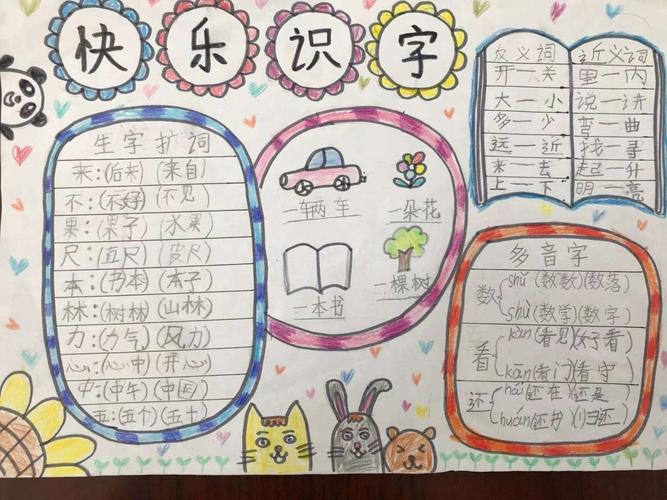 快乐识字
生字扩词
来:(后来)(来自)
不:(不好)(不见)
果:(果子)(水果)
尺:(直尺)(皮尺)
本:(书本)(本子)
林:(树林)(山林)
力:(力气)(风力)
心:(心中)(开心)
中:(中午)(中国)
五:(五个)(五十)
一辆车
一朵花
一本书
一棵树
反义词
开一关
大一小
多一少
远一近
来一去
上一下
近义词
里一内
说一讲
弯一曲
找一寻
起一升
明一亮
多音字
数
shǔ(数数)(数落)
shù(数学)(数字)
看
kàn(看见)(好看)
kān(看门)(看守)
还
hái(还在)(还是)
huán(还书)(归还)